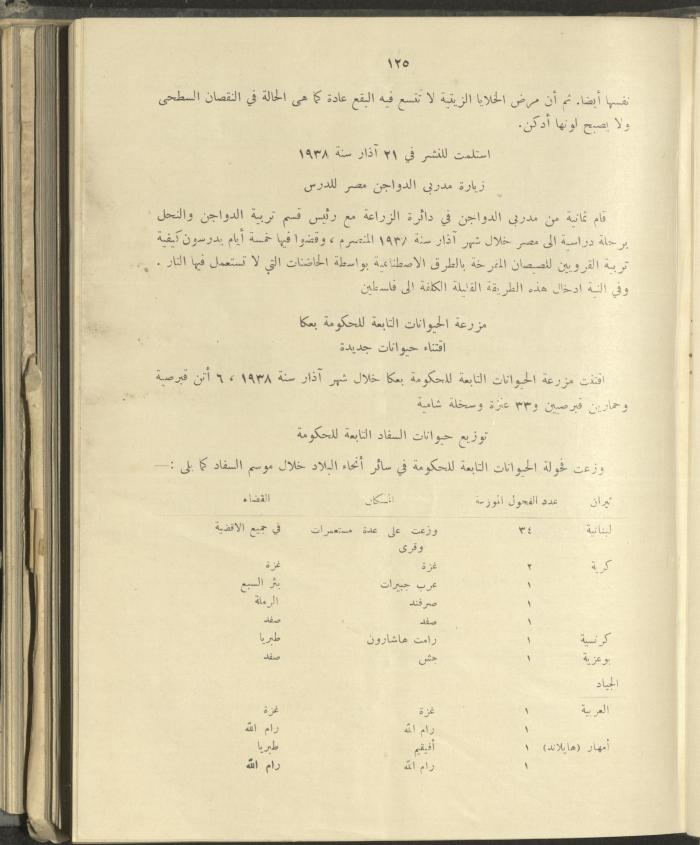 ١٢٥
نفسها أيضا. ثم أن مرض الخلايا الزيتية لا تتسع فيه البقع عادة كما هى الحالة في النقصان السطحى
ولا يصبح لونها أدكن.
استلمت للنشر في ٢١ آذار سنة ١٩٣٨
زيارة مدربى الدواجن مصر للدرس
قام ثمانية من مدربى الدواجن في دائرة الزراعة مع رئيس قسم تربية الدواجن والنحل
برحلة دراسية الى مصر خلال شهر آذار سنة ١٩٣٨ المنصرم ، وقضوا فيها خمسة أيام يدرسون كيفية
تربية القرويين للصيصان المفرخة بالطرق الاصطناعية بواسطة الحاضنات التي لا تستعمل فيها النار .
وفي النية ادخال هذه الطريقة القليلة الكلفة الى فلسطين
مزرعة الحيوانات التابعة للحكومة بعكا
اقتناء حيوانات جديدة
اقتنت مزرعة الحيوانات التابعة للحكومة بعكا خلال شهر آذار سنة ١٩٣٨ ، ٦ أتن قبرصية
وحمارين قبرصيين و٣٣ عنزة وسخلة شامية
توزيع حيوانات السفاد التابعة للحكومة
وزعت فحولة الحيوانات التابعة للحكومة في سائر أنحاء البلاد خلال موسم السفاد كما يلى :—
ثيران عدد الفحول الموزعة المكان القضاء
لبنانية ٣٤ وزعت على عدة مستعمرات في جميع الاقضية
وقرى
كرية ٢ غزة غزة
١ عرب جبيرات بئر السبع
١ صرفند الرملة
١ صفد صفد
كرنسية ١ رامت هاشارون طبريا
بوعزية ١ جش صفد
الجياد
العربية ١ غزة غزة
١ رام الله رام الله
أمهار (هايلاند) ١ أفيقيم طبريا
١ رام الله رام الله